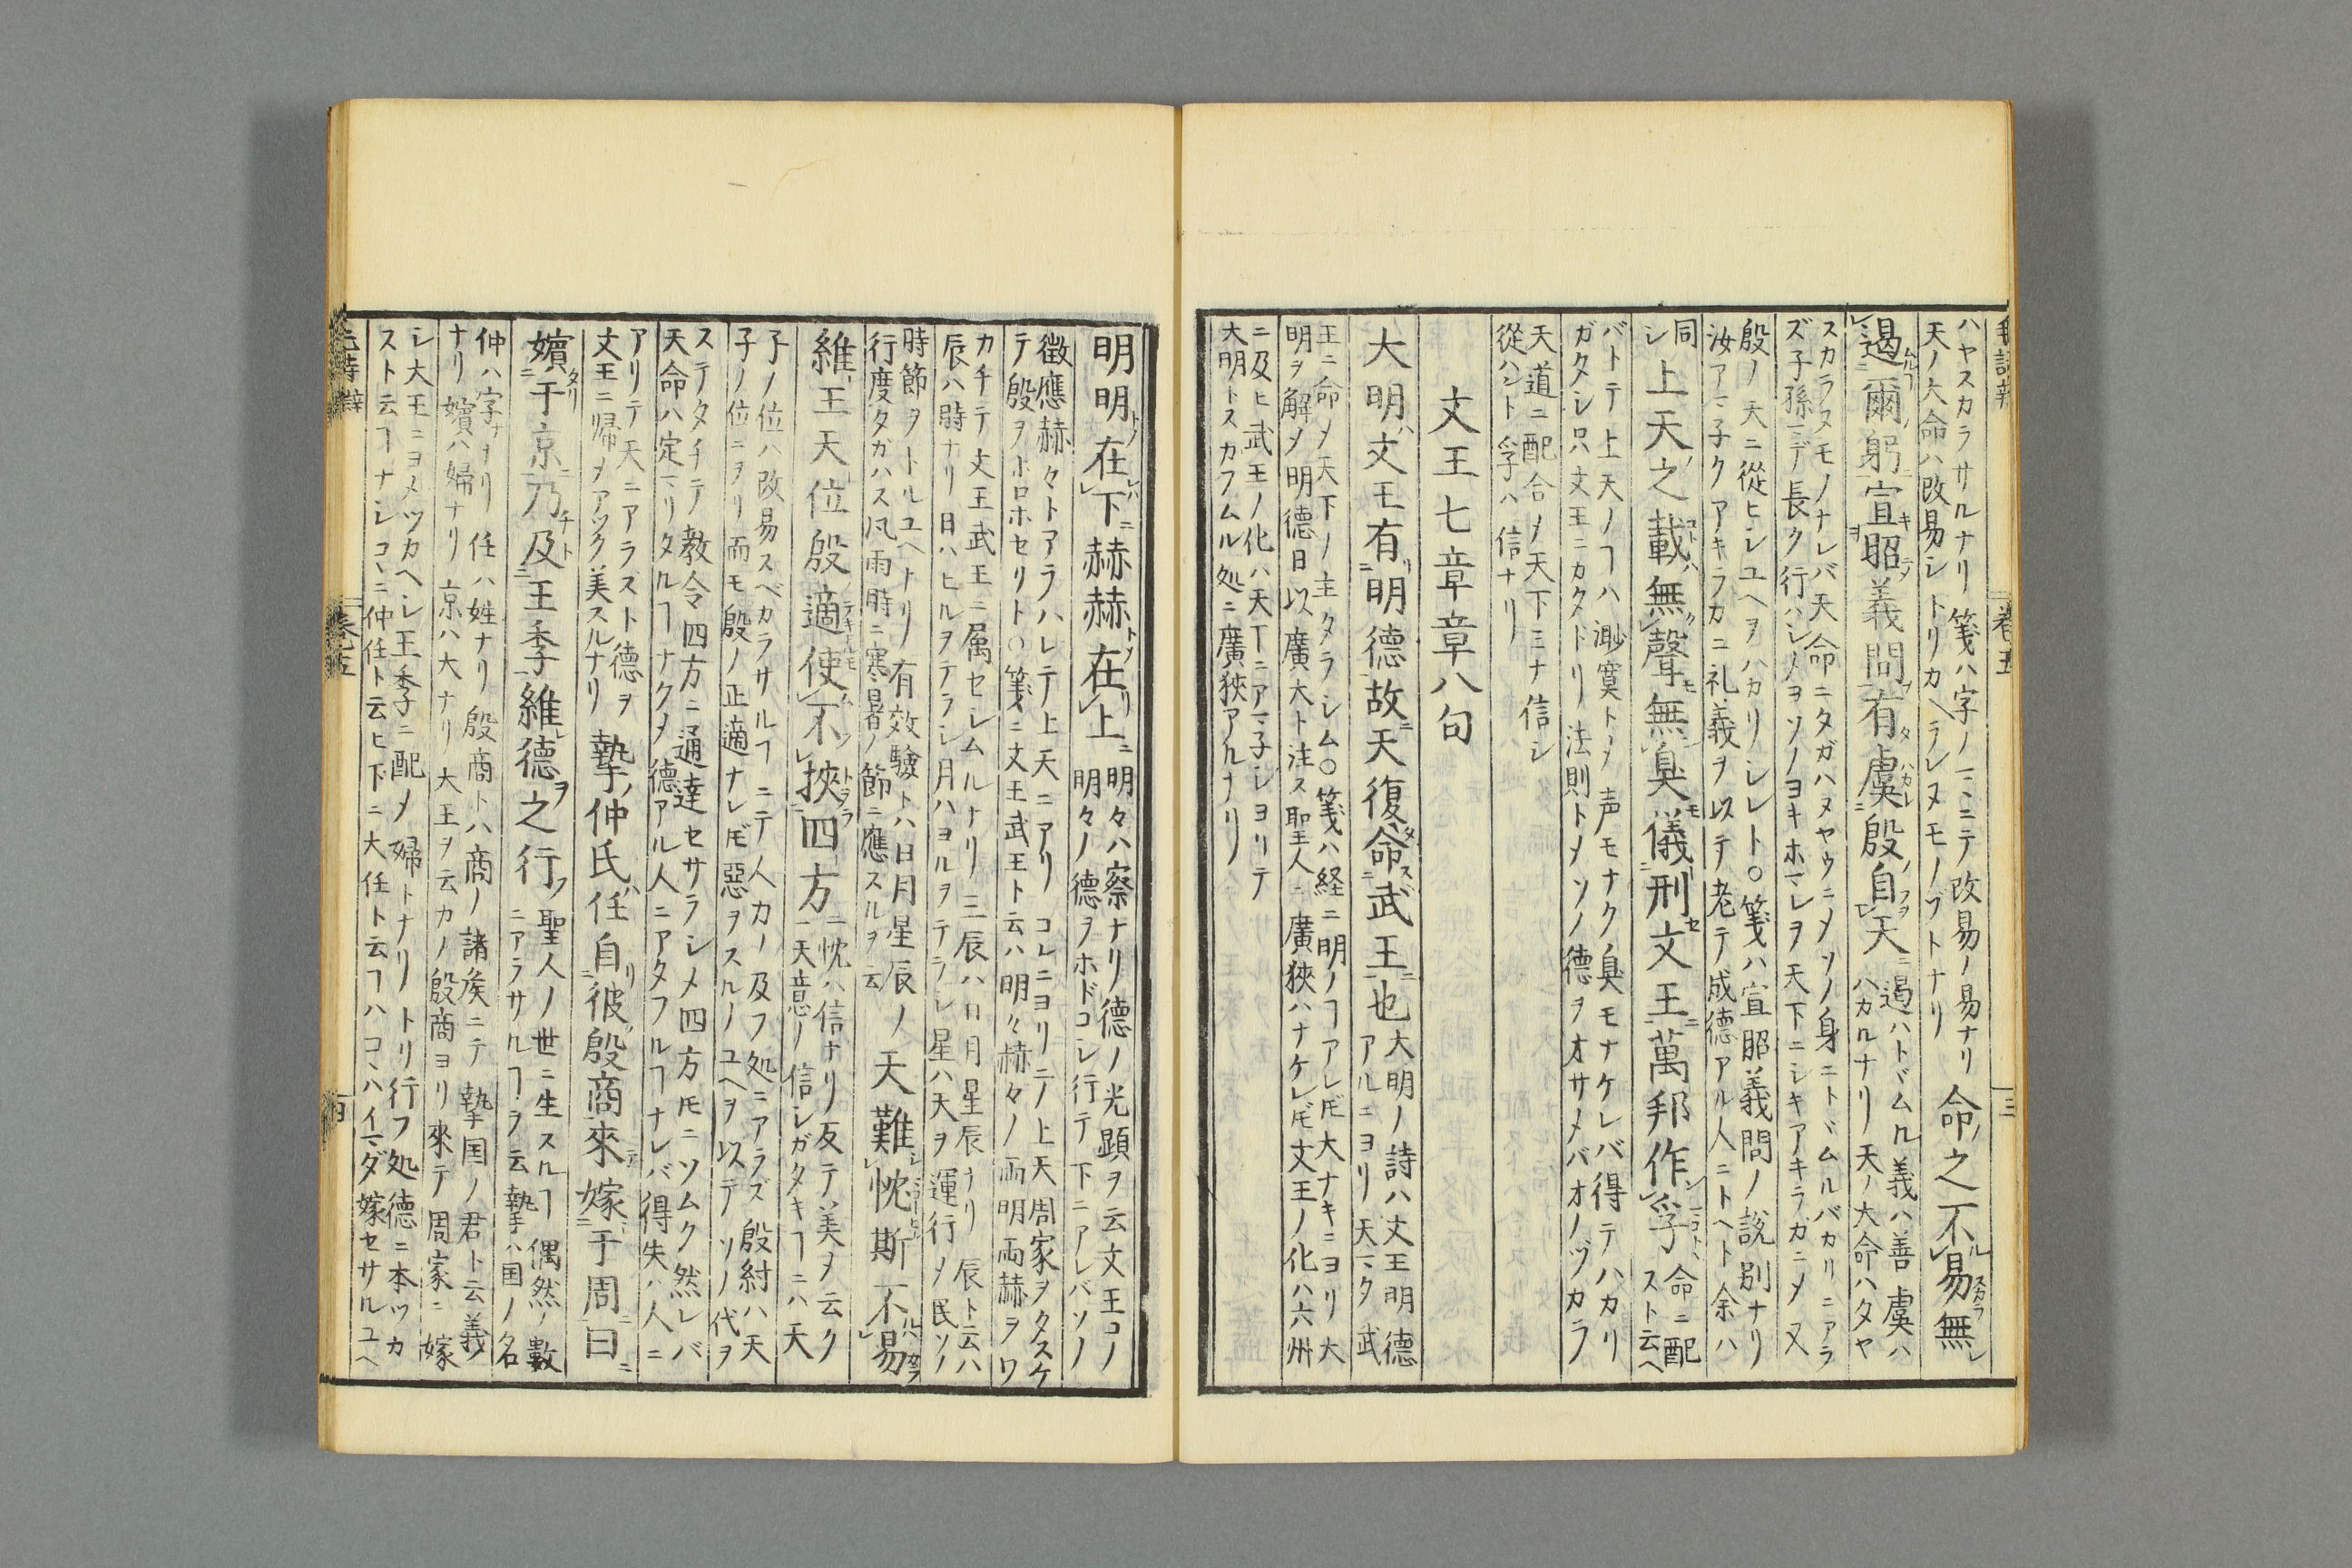 ハヤスカラサルナリ 箋ハ字ノマヽニテ改易ノ易ナリ
天ノ大命ハ改易シトリカヘラレヌモノゾトナリ
命之不易無
遏爾躬宣昭義問有虞殷自天
遏ハトヾムル義ハ善虞ハ
ハカルナリ天ノ大命ハタヤ
スカラヌモノナレバ天命ニタガハヌヤウニメソノ身ニトヾムルバカリニアラ
ズ子孫マデ長ク行ハレメヨソノヨキホマレヲ天下ニシキアキラカニメ又
殷ノ天ニ從ヒシユヘヲハカリシレト○箋ハ宣昭義問ノ説別ナリ
汝アマ子クアキラカニ礼義ヲ以テ老テ成德アル人ニトヘト余ハ
同
シ
上天之載無聲無臭儀刑文王萬邦作孚
命ニ配
スト云ヘ
バトテ上天ノヿハ渺寞トメ声モナク臭モナケレバ得テハカリ
ガタシ只文王ニカタドリ法則トメソノ德ヲオサメバオノヅカラ
天道ニ配合メ天下ミナ信シ
從ハント孚ハ信ナリ
文王七章章八句
大明文王有明德故天復命武王也
大明ノ詩ハ文王明德
アルニヨリ天マタ武
王ニ命メ天下ノ主タラシム○箋ハ経ニ明ノヿアレ𪜈大ナキニヨリ大
明ヲ解メ明德日以廣大ト注ス聖人ニ廣狹ハナケレ𪜈文王ノ化ハ六州
ニ及ヒ武王ノ化ハ天下ニアマ子シヨリテ
大明トスカフムル処ニ廣狹アルナリ
明明在下赫赫在上
明々ハ察ナリ德ノ光顕ヲ云文王コノ
明々ノ德ヲホドコシ行テ下ニアレバソノ
徵應赫々トアラハレテ上天ニアリコレニヨリテノ上天周家ヲタスケ
テ殷ヲホロホセリト○箋ニ文王武王ト云ハ明々赫々ノ両明両赫ヲワ
カチテ文王武王ニ属セシムルナリ三辰ハ日月星辰ナリ辰ト云ハ
辰ハ時ナリ日ハヒルヲテラシ月ハヨルヲテラシ星ハ天ヲ運行メ民ソノ
時節ヲトルユヘナリ有效驗トハ日月星辰ノ
行度タガハス风雨時ニ寒暑ノ節ニ應スルヲ云
天難忱斯不易
維王天位殷適使不挾四方
忱ハ信ナリ反テ美メ云ク
天意ノ信シガタキヿニハ天
子ノ位ハ改易スベカラサルヿニテ人カノ及フ処ニアラズ殷紂ハ天
子ノ位ニヲリ而モ殷ノ正適ナレ𪜈惡ヲスルノユヘヲ以テソノ代ヲ
ステタチテ教令四方ニ通達セサラシメ四方𪜈ニソムク然レバ
天命ハ定マリタルヿナクメ德アル人ニアタフルヿナレバ得失ハ人ニ
アリテ天ニアラズト德ヲ
文王ニ帰メアツク美スルナリ
摯仲氏任自彼殷商來嫁于周曰
嬪于京乃及王季維德之行
聖人ノ世ニ生スルヿ偶然ノ數
ニアラサルヿヲ云摯ハ国ノ名
仲ハ字ナリ任ハ姓ナリ殷商トハ商ノ諸矦ニテ摯国ノ君ト云義
ナリ嬪ハ婦ナリ京ハ大ナリ大王ヲ云カノ殷商ヨリ來テ周家ニ嫁
シ大王ニヨメツカヘシ王季ニ配メ婦トナリトリ行フ処德ニ本ツカ
ストニ云ヿナシコヽニ仲任ト云ヒ下ニ大任ト云ヿハコヽハイマダ嫁セサルユヘ
毛詩辯
巻五
三